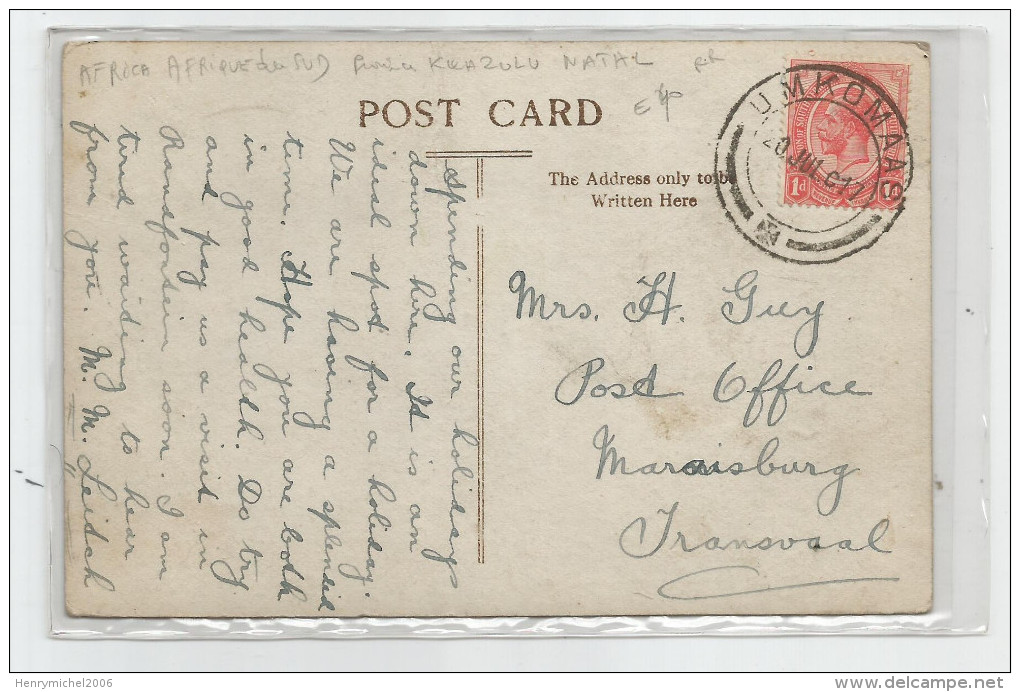 AFRICA AFRIQUE du SUD KWAZULU NATAL
POST CARD
The Address only to be
Written Here
UMKOMAAS
20 JUL 17
1d
Spending our holidays
down here. It is an
ideal spot for a holiday.
We are having a splendid
time. Hope you are both
in good health. Do try
and pay us a visit in
Randfontein soon. I am
tired waiting to hear
from you. M. M. Leitch
Mrs. H. Guy
Post Office
Maraisburg
Transvaal
Henrymichel2006
delcampe.net